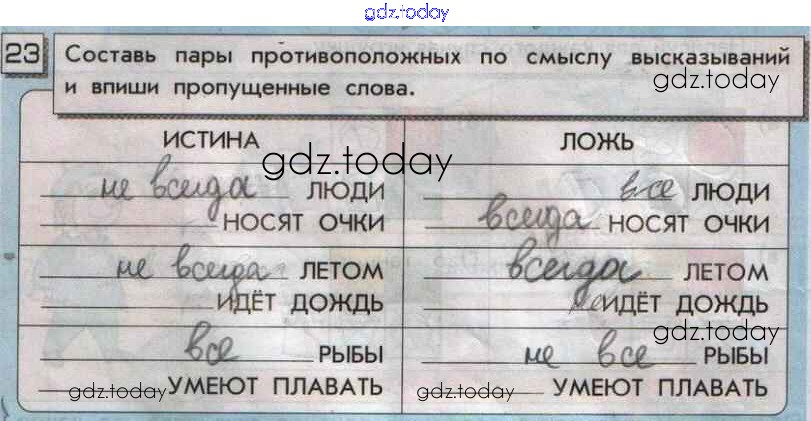 gdz.today
23 Составь пары противоположных по смыслу высказываний
и впиши пропущенные слова.
gdz.today
ИСТИНА ЛОЖЬ
gdz.today
не всегда ЛЮДИ
НОСЯТ ОЧКИ
все ЛЮДИ
всегда НОСЯТ ОЧКИ
не всегда ЛЕТОМ
ИДЁТ ДОЖДЬ
всегда ЛЕТОМ
не ИДЁТ ДОЖДЬ
все РЫБЫ
УМЕЮТ ПЛАВАТЬ
не все РЫБЫ
УМЕЮТ ПЛАВАТЬ
gdz.today
gdz.today
gdz.today